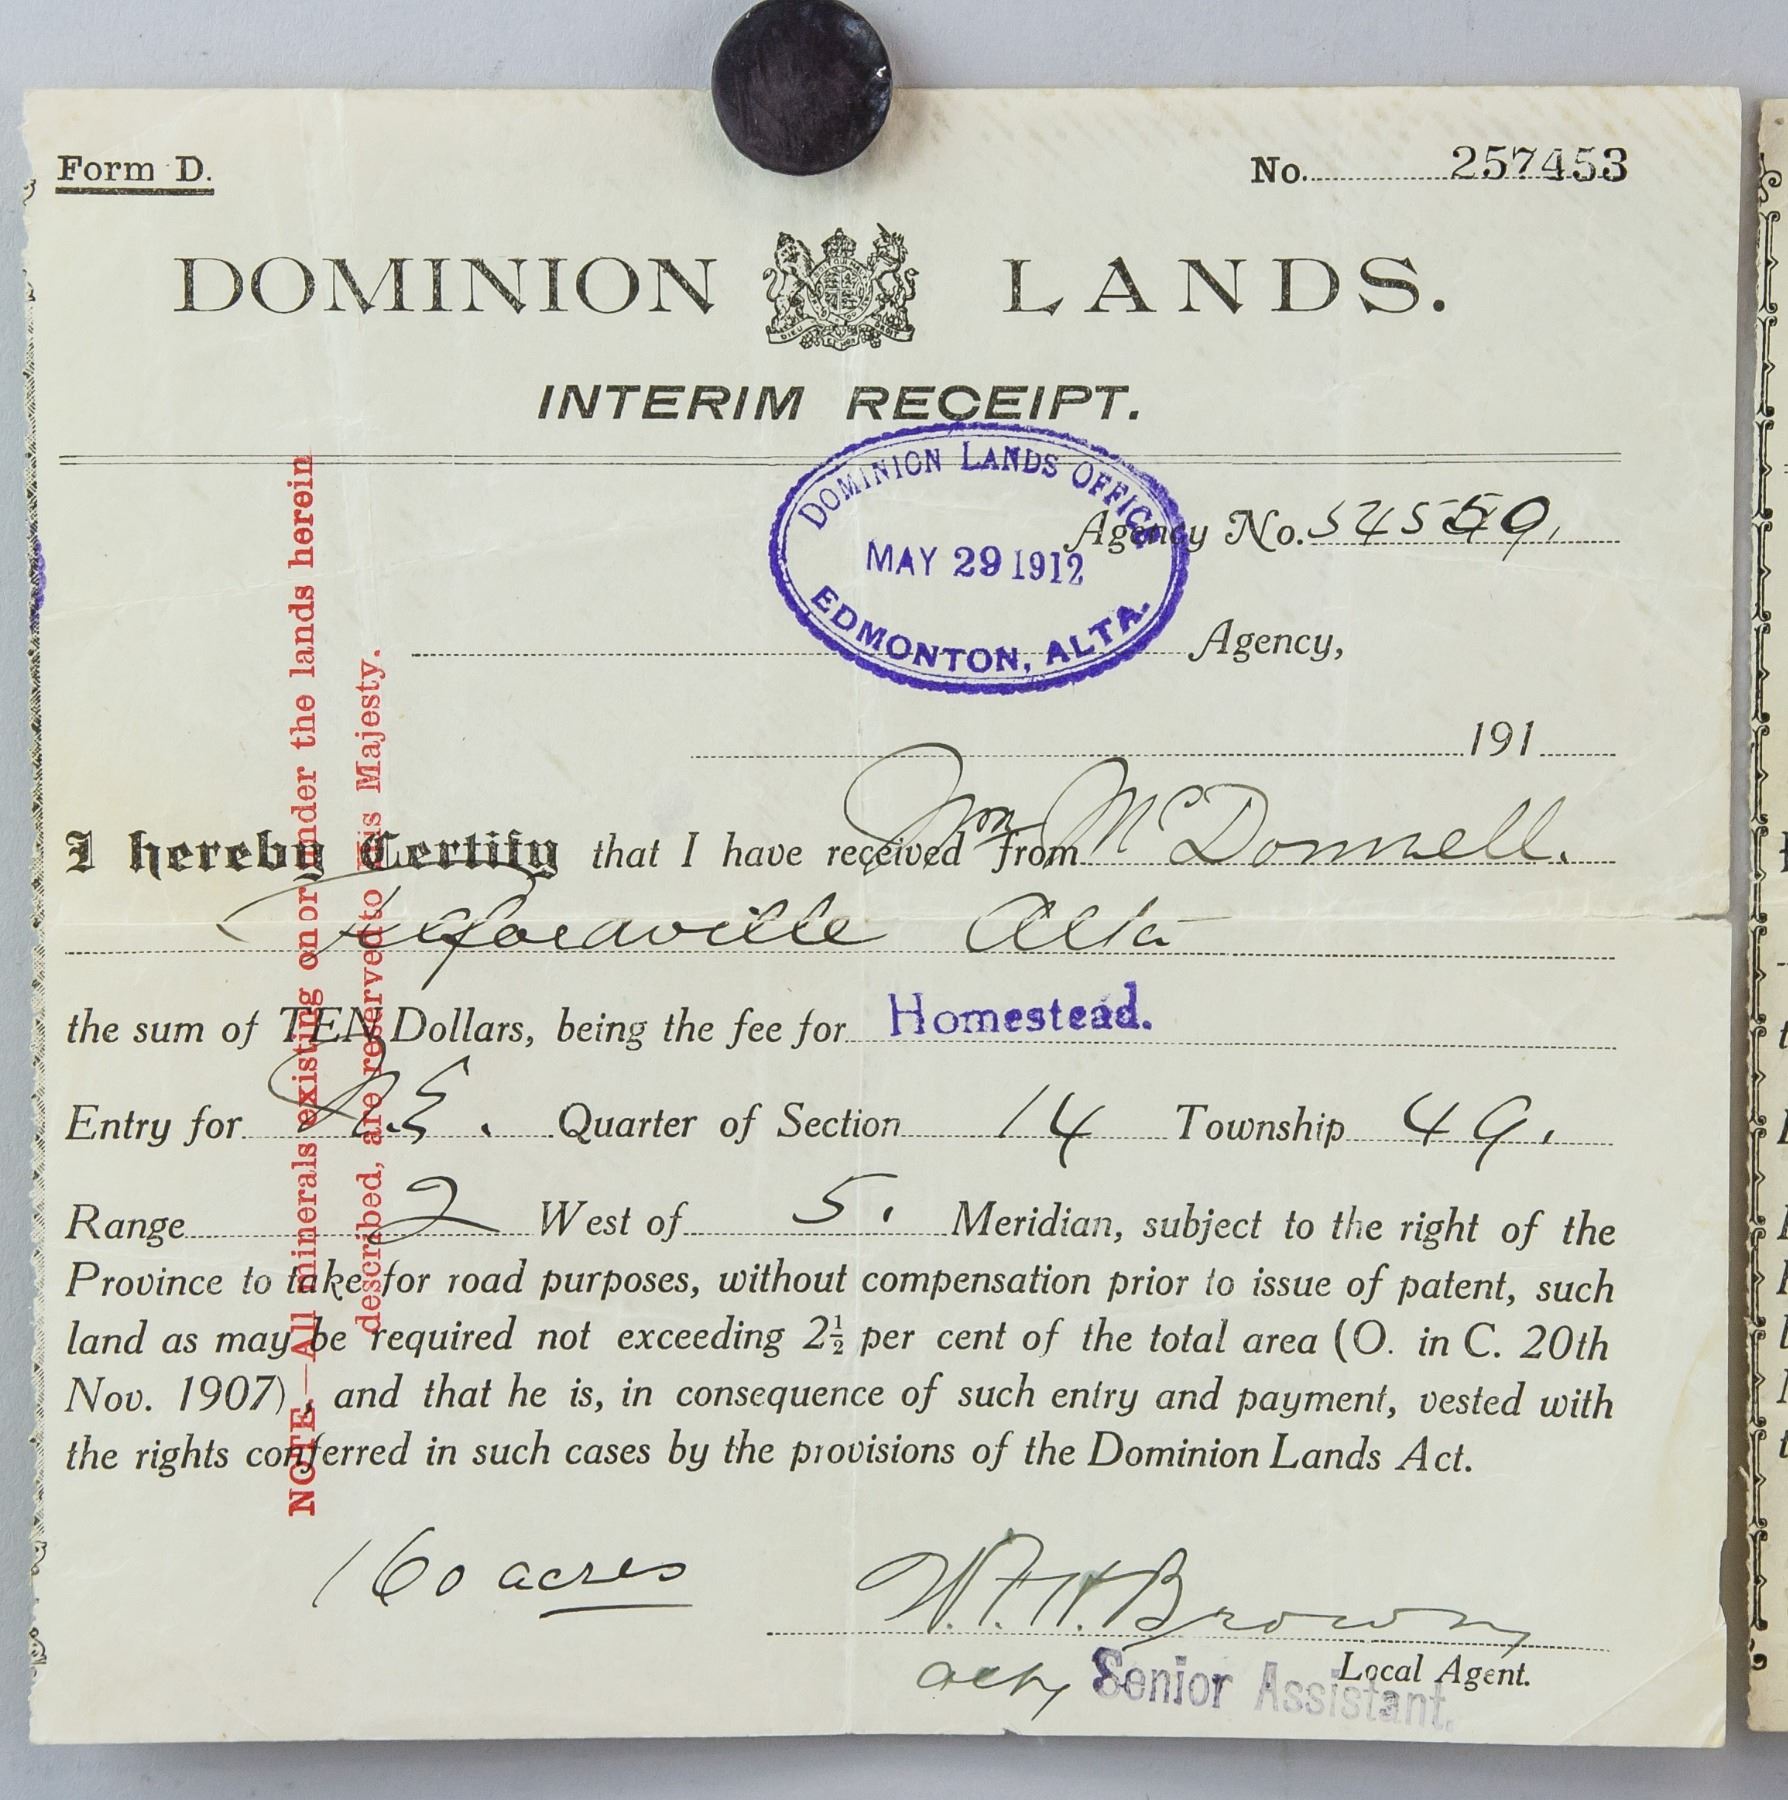 Form D.
No. 257453
DOMINION LANDS.
DIEU ET MON DROIT
INTERIM RECEIPT.
DOMINION LANDS OFFICE
MAY 29 1912
EDMONTON, ALTA.
Agency No.
Agency,
191
I hereby Certify that I have received from Wm McDonnell.
Telfordville Alta
the sum of TEN Dollars, being the fee for Homestead.
Entry for N.E. Quarter of Section 14 Township 49.
Range 2 West of 5. Meridian, subject to the right of the
Province to take for road purposes, without compensation prior to issue of patent, such
land as may be required not exceeding 2½ per cent of the total area (O. in C. 20th
Nov. 1907), and that he is, in consequence of such entry and payment, vested with
the rights conferred in such cases by the provisions of the Dominion Lands Act.
160 acres
Brown
Local Agent.
Senior Assistant.
NOTE—All minerals existing on or under the lands herein
described, are reserved to His Majesty.